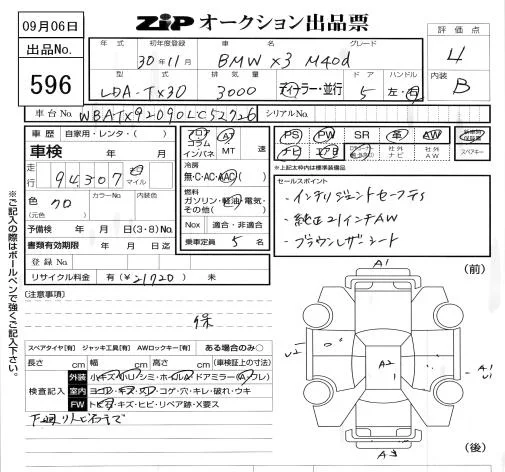 09月06日
ZiP オークション出品票
出品No.
596
年式 初年度登録 車名 グレード
30年11月 BMW X3 M40d
型式 排気量 ドア ハンドル
LDA-TX30 3000 ディーラー・並行 5 左・右
評価点
4
内装
B
車台No. WBATX92090LC52726 シリアルNo.
車歴 自家用・レンタ・( )
車検 年 月
走行 94,307 キロ マイル
色 クロ カラーNo. 内装色
(元色)
予備検 年 月 日(3・8)No.
書類有効期限 年 月 日迄
登録No.
リサイクル料金 有(¥21720) 未
フロア コラム インパネ AT MT 速
冷房
無・C・AC・AAC( )
燃料
ガソリン・軽油・電気・その他( )
Nox 適合・非適合
乗車定員 5 名
PS PW SR 革 AW
ナビ エアB 社外ナビ 社外AW スペアキー
*上記太枠内は標準装備品
セールスポイント
・インテリジェントセーフティ
・純正21インチAW
・ブラウンレザーシート
[注意事項]
保
スペアタイヤ[有] ジャッキ工具[有] AWロックキー[有] ある場合のみ○
長さ cm 幅 cm 高さ cm (車検証上の寸法)
検査記入
外装 小キズ・小U・シミ・ホイール・ドアミラー(A,フレ)
室内 ヨゴレ・キズ・スレ・コゲ・穴・キレ・破れ・ウキ
FW トビ石・キズ・ヒビ・リペア跡・X要ス
※ご記入の際はボールペンで強くご記入下さい。
(前)
A1
U2
A2
1
A1
U1
A3
(後)